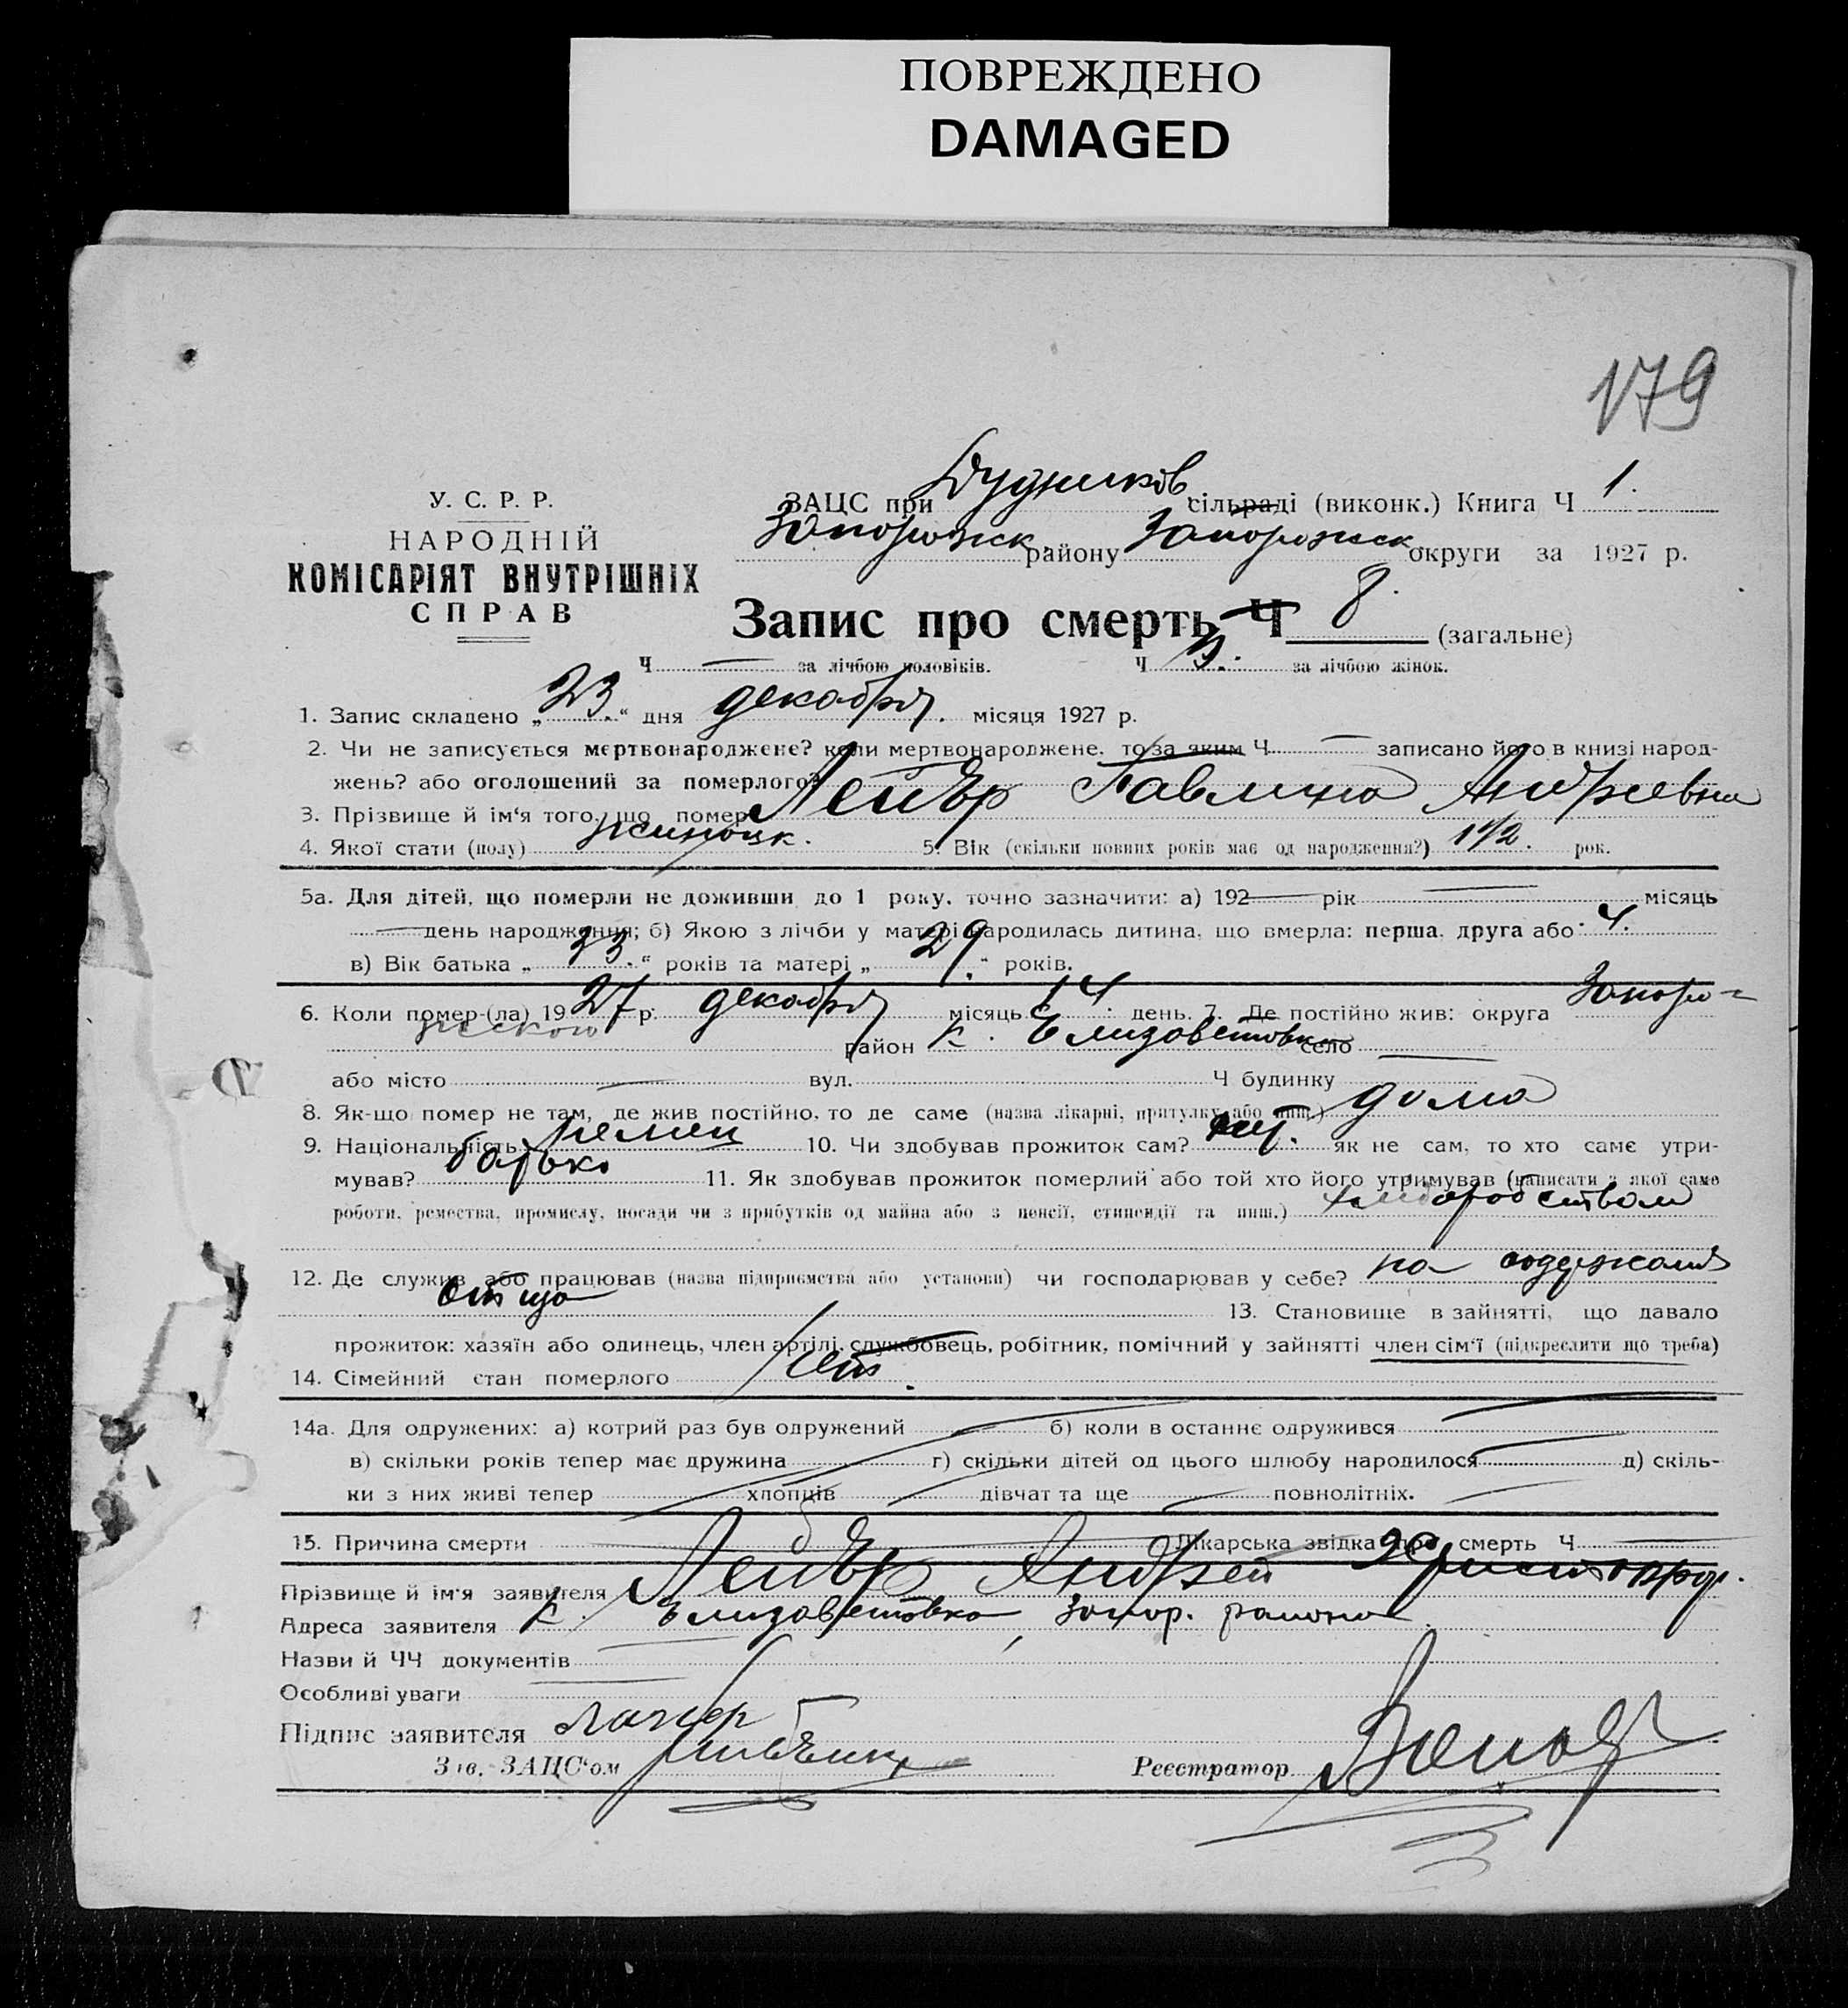 ПОВРЕЖДЕНО
DAMAGED
179
У. С. Р. Р.
НАРОДНІЙ
КОМІСАРІЯТ ВНУТРІШНІХ
СПРАВ
ЗАЦС при сільраді (виконк.) Книга Ч 1.
Запорожск району Запорожск округи за 1927 р.
Запис про смерть Ч 8. (загальне)
Ч — за лічбою чоловіків. Ч за лічбою жінок.
1. Запис складено „ 23. “ дня декабря. місяця 1927 р.
2. Чи не записується мертвонароджене? коли мертвонароджене. то за яким Ч — записано його в книзі народ-
жень? або оголошений за померлого?
3. Прізвище й ім‘я того, що помер Андреевна
4. Якої стати (полу) 5. Вік (скільки повних років має од народження?) 1 1/2. рок.
5а. Для дітей, що померли не доживши до 1 року, точно зазначити: а) 192— рік — місяць
— день народження; б) Якою з лічби у матері народилась дитина, що вмерла: перша, друга або 4.
в) Вік батька „ 33. “ років та матері „ 29. “ років.
6. Коли помер-(ла) 1927 р. декабря місяць 14. день. 7. Де постійно жив: округа Запоро-
жскою район к. Елизаветовка село —
або місто — вул. Ч будинку
8. Як-що помер не там, де жив постійно, то де саме (назва лікарні, притулку або инш.) дома
9. Національність немец 10. Чи здобував прожиток сам? нет. як не сам, то хто саме утри-
мував? батько 11. Як здобував прожиток померлий або той хто його утримував (написати з якої саме
роботи, ремества, промислу, посади чи з прибутків од майна або з пенсії, стипендії та инш.) хлеборобством
12. Де служив або працював (назва підприємства або установи) чи господарював у себе? на содержании
отца 13. Становище в зайнятті, що давало
прожиток: хазяїн або одинець, член артілі, службовець, робітник, помічний у зайнятті член сім‘ї (підкреслити що треба)
14. Сімейний стан померлого нет.
14а. Для одружених: а) котрий раз був одружений б) коли в останнє одружився
в) скільки років тепер має дружина г) скільки дітей од цього шлюбу народилося д) скіль-
ки з них живі тепер хлопців дівчат та ще повнолітніх.
15. Причина смерти Лікарська звідка про смерть Ч
Прізвище й ім‘я заявителя Андрей
Адреса заявителя к. Елизаветовка, Запор. района
Назви й ЧЧ документів
Особливі уваги
Підпис заявителя
Зав. ЗАЦС‘ом
Реєстратор